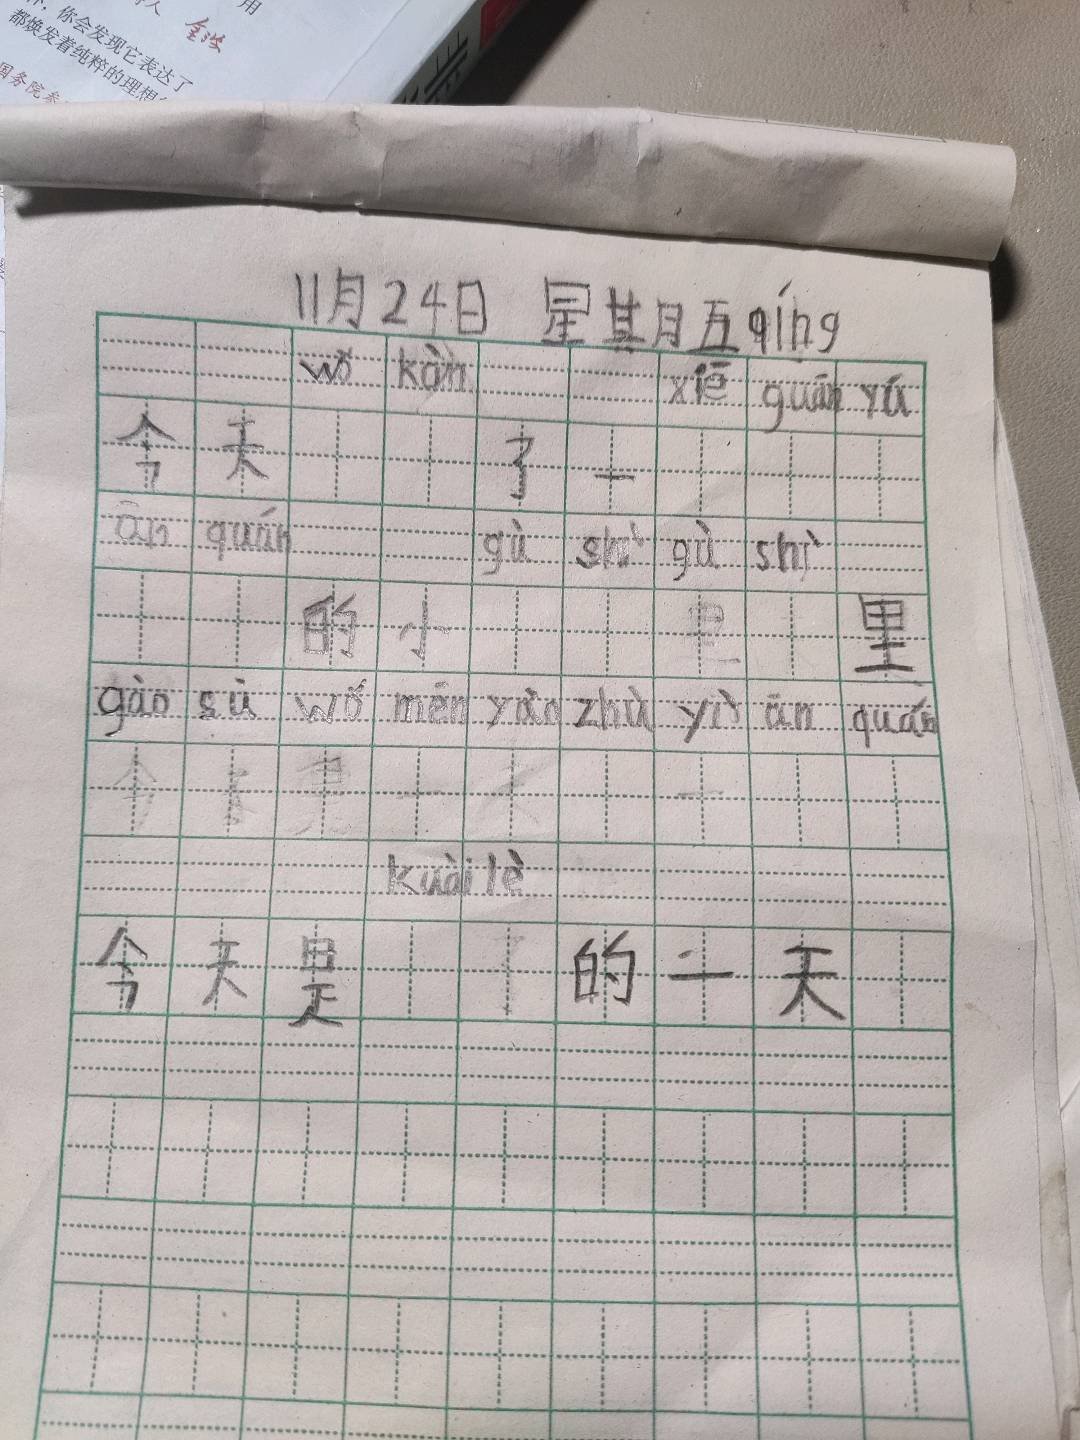 用
你会发现它表达了
都焕发着纯粹的理想
国务院参
11月24日 星其月五qíng
wǒ kàn xiē guān yú
今天了一
ān quán gù shì gù shì
的小里里
gào sù wǒ mēn yào zhù yì ān quán
今天是一天一
kuài lè
今天是的一天